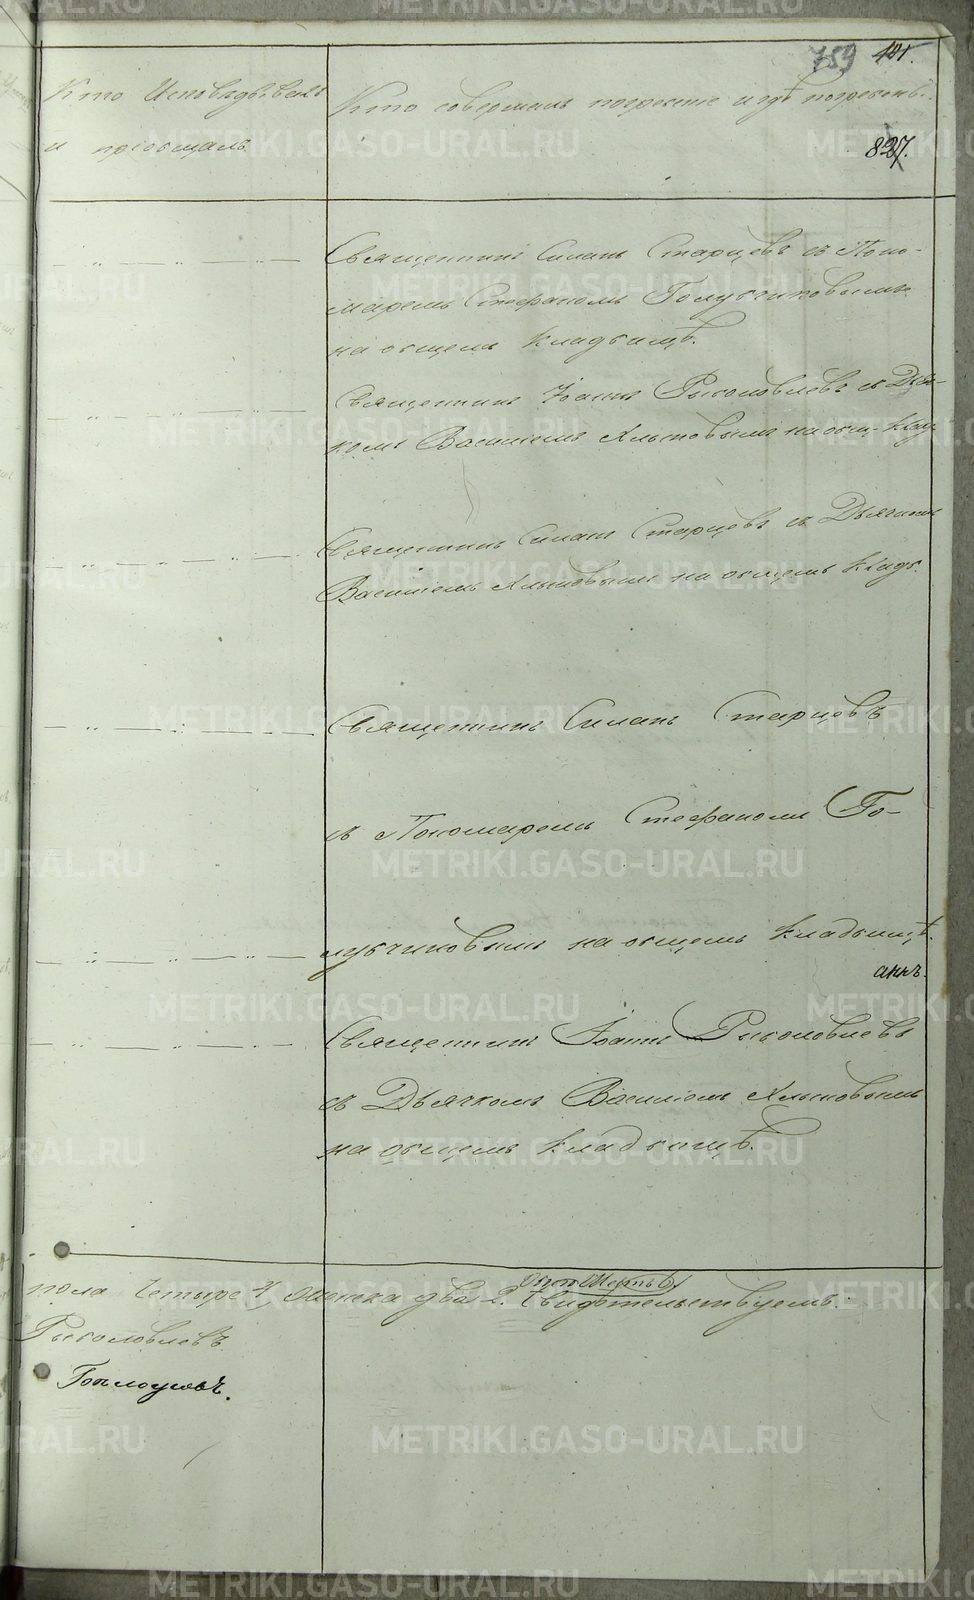 759 481.
Кто Исповѣдывалъ
и пріобщалъ
Кто совершалъ погребеніе и гдѣ погребенъ.
827.
Священникъ Силанъ Старцевъ съ Поно-
маремъ Стефаномъ Голубчиковымъ
на общемъ кладбищѣ.
Священникъ Іоаннъ Рыболовлевъ съ Дья-
комъ Василіемъ Хлыновымъ на общ. клад.
Священникъ Силанъ Старцевъ съ Дьячкомъ
Василіемъ Хлыновымъ на общемъ кладб.
Священникъ Силанъ Старцевъ
съ Пономаремъ Стефаномъ Го-
лубчиковымъ на общемъ кладбищѣ.
Священникъ Іоаннъ Рыболовлевъ
съ Дьячкомъ Василіемъ Хлыновымъ
на общемъ кладбищѣ.
пола четыре 4 женска два 2. Свидѣтельствуемъ:
Рыболовлевъ
METRIKI.GASO-URAL.RU